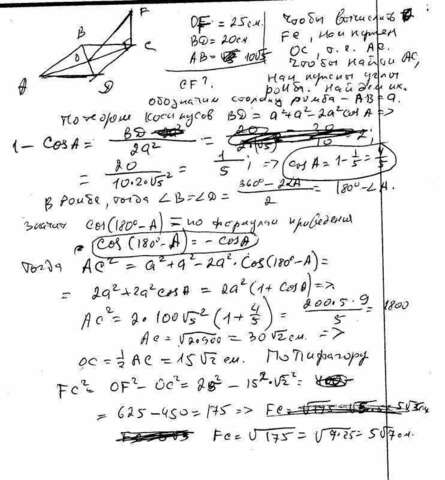 F
B
C
O
A
D
OF = 25 см.
BD = 20 см
AB = 10√5
CF?
Чтобы вычислить
FC, нам нужен
OC, т.е. AC.
Чтобы найти AC,
нам нужны углы
ромба. Найдем их.
обозначим сторону ромба – AB = a.
По теореме косинусов BD = a² + a² – 2a² cos A =>
1 – cos A = BD / 2a² =
= 20 / 10·2·√5² = 1/5; => cos A = 1 – 1/5 = 4/5
В ромбе, тогда ∠B = ∠D = 360° – 2∠A / 2 = 180° – ∠A.
Значит cos(180° – A) = по формулам приведения
cos(180° – A) = – cos A
Тогда AC² = a² + a² – 2a²·cos(180° – A) =
= 2a² + 2a² cos A = 2a²(1 + cos A) =>
AC² = 2·100√5²(1 + 4/5) = 200·5·9 / 5 = 1800
AC = √2·900 = 30√2 см. =>
OC = ½ AC = 15√2 см. По Пифагору
FC² = OF² – OC² = 25² – 15²·√2² =
= 625 – 450 = 175 => FC = √175
FC = √175 = √7·25 = 5√7 см.